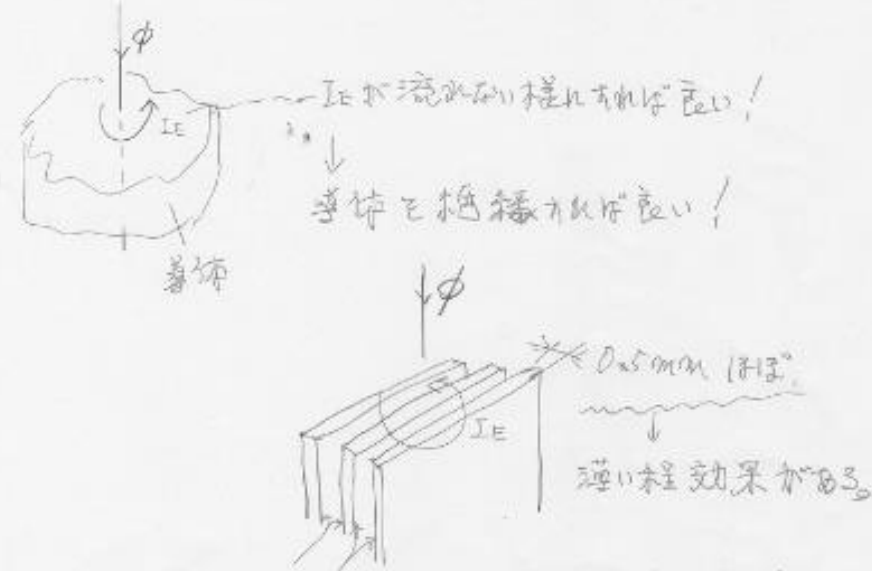 φ
IE
IEが流れない様にすれば良い!
↓
導体を絶縁すれば良い!
導体
φ
0.5mmほぼ
IE
↓
薄い程効果がある。